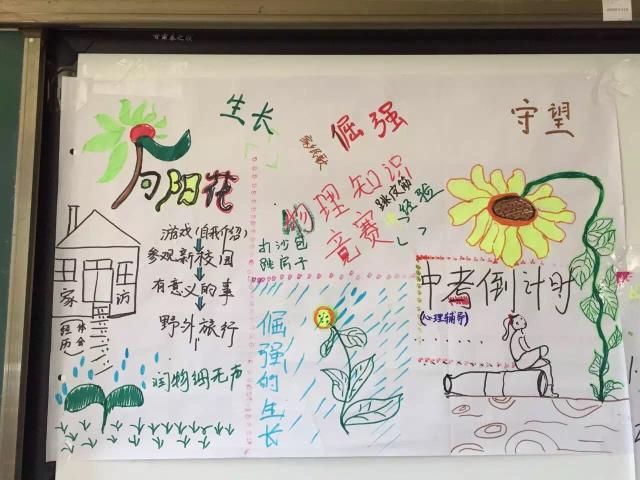 向阳花
游戏(自我介绍)
参观新校园
有意义的事
野外旅行
润物细无声
家访
经历
体会
生长
倔强
物理知识
竞赛
跳皮筋
经验
打沙包
跳房子
倔强的生长
守望
中考倒计时
(心理辅导)